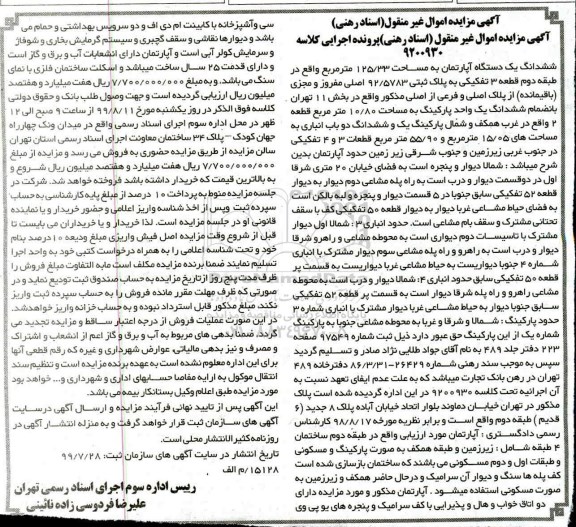 آگهی مزایده اموال غیر منقول(اسناد رهنی)
آگهی مزایده اموال غیر منقول (اسناد رهنی)پرونده اجرایی کلاسه
۹۲۰۰۹۳۰
ششدانگ یک دستگاه آپارتمان به مساحت ۱۲۵/۳۳ مترمربع واقع در
طبقه دوم قطعه ۳ تفکیکی به پلاک ثبتی ۹۲/۵۷۸۳ اصلی مفروز و مجزی
(باقیمانده) از پلاک اصلی و فرعی از اصلی مذکور واقع در بخش ۱۱ تهران
بانضمام ششدانگ یک واحد پارکینگ به مساحت ۱۰/۸۰ متر مربع قطعه
۲ واقع در غرب همکف و شمال پارکینگ یک و ششدانگ دو باب انباری به
مساحت های ۱۵/۰۵ مترمربع و ۵۵/۹۰ متر مربع قطعات ۳ و ۴ تفکیکی
در جنوب غربی زیرزمین و جنوب شرقی زیر زمین حدود آپارتمان بدین
شرح میباشد : شمالا دیوار و پنجره است به فضای خیابان ۲۰ متری شرقا
اول در دوقسمت دیوار و درب است به راه پله مشاعی دوم دیوار به دیوار
قطعه ۵۲ تفکیکی سابق جنوبا در ۵ قسمت دیوار و پنجره ولبه بالکن است
به فضای حیاط مشاعی غربا دیوار به دیوار قطعه ۵۰ تفکیکی کف با سقف
تحتانی مشترک و سقف بام مشاعی است. حدود انباری ۳ : شمالا اول دیوار
مشترک با تاسیسات دوم دیواری است به محوطه مشاعی و راهرو شرقا
دیوار و درب است به راهرو و راه پله مشاعی سوم دیوار مشترک با انباری
شماره ۴ جنوبا دیواریست به حیاط مشاعی غربا دیواریست به قسمت پر
قطعه ۵۰ تفکیکی سابق حدود انباری ۴ : شمالا دیوار و درب است به محوطه
مشاعی راهرو و راه پله شرقا دیوار است به قسمت پر قطعه ۵۲ تفکیکی
سابق جنوبا دیوار به حیاط مشاعی غربا دیوار مشترک با انباری شماره ۳
حدود پارکینگ : شمالا و شرقا و غربا به محوطه مشاعی جنوبا به پارکینگ
شماره یک از این پارکینگ حق عبور دارد ذیل ثبت شماره ۹۷۵۴۹ صفحه
۲۲۳ دفتر جلد ۴۸۹ به نام آقای جواد طلایی نژاد صادر و تسلیم گردید
سپس به موجب سند رهنی شماره ۲۶۴۲۹-۸۶/۳/۳۱ دفترخانه ۴۸۹
تهران در رهن بانک تجارت میباشد که به علت عدم ایفای تعهد نسبت به
آن اجرائیه تحت کلاسه ۹۲۰۰۹۳۰ در این اداره گردیده شده است پلاک
مذکور در تهران خیابان دماوند بلوار اتحاد خیابان آباده پلاک ۸ جدید (۶
قدیم ) طبقه دوم واقع است و برابر نظریه مورخه ۹۸/۸/۱۷ کارشناس
رسمی دادگستری : آپارتمان مورد ارزیابی واقع در طبقه دوم ساختمان
۴ طبقه شامل : زیرزمین و طبقه همکف به صورت پارکینگ و مسکونی
و طبقات اول و دوم مسکونی می باشند که ساختمان بازسازی شده است
کف پله ها سنگ و دیوار آن سرامیک و درحال حاضر همکف و زیرزمین به
صورت مسکونی استفاده میشود . آپارتمان مذکور و مورد مزایده دارای
دو اتاق خواب و هال و پذیرایی با کف سرامیک و پنجره های یو پی وی
سی و آشپزخانه با کابینت ام دی اف و دو سرویس بهداشتی و حمام می
باشد و دیوارها نقاشی و سقف گچبری و سیستم گرمایش بخاری و شوفاژ
و سرمایش کولر آبی است و آپارتمان دارای انشعابات آب و برق و گاز است
و دارای قدمت ۲۵ سال ساخت میباشد و اسکلت ساختمان فلزی با نمای
سنگ می باشد. و به مبلغ ۷/۷۰۰/۰۰۰/۰۰۰ ریال هفت میلیارد و هفتصد
میلیون ریال ارزیابی گردیده است و جهت وصول طلب بانک و حقوق دولتی
کلاسه فوق الذکر در روز یکشنبه مورخ ۹۹/۸/۱۱ از ساعت ۹ صبح الی ۱۲
ظهر در محل اداره سوم اجرای اسناد رسمی واقع در میدان ونک چهارراه
جهان کودک - پلاک ۳۴ ساختمان معاونت اجرای اسناد رسمی استان تهران
سالن مزایده از طریق مزایده حضوری به فروش می رسد و مزایده از مبلغ
۷/۷۰۰/۰۰۰/۰۰۰ ریال هفت میلیارد و هفتصد میلیون ریال شروع و
به بالاترین قیمت که خریدار داشته باشد فروخته خواهد شد. شرکت در
جلسه مزایده منوط به پرداخت ۱۰ درصد از مبلغ پایه کارشناسی به حساب
سپرده ثبت وپس از اخذ شناسه واریز اعلامی و حضور خریدار و یا نماینده
قانونی او در جلسه مزایده است. لذا خریدار و یا خریداران می بایست تا
قبل از شروع وقت مزایده اصل فیش واریزی مبلغ ودیعه ۱۰درصد بنام
خود و تحت شناسه اعلامی را به همراه درخواست کتبی خود به واحد اجرا
تسلیم نمایند ضمنا برنده مزایده مکلف است مابه التفاوت مبلغ فروش را
ظرف مدت پنج روز از تاریخ مزایده به حساب صندوق ثبت تودیع نماید و در
صورتی که ظرف مهلت مقرر مانده فروش را به حساب سپرده ثبت واریز
نکند، مبلغ مذکور قابل استرداد نبوده و به حساب خزانه واریز خواهدشد.
در این صورت عملیات فروش از درجه اعتبار ساقط و مزایده تجدید می
گردد. ضمنا بدهی های مربوط به آب و برق و گاز اعم از انشعاب و اشتراک
و مصرف و نیز بدهی مالیاتی، عوارض شهرداری و غیره که رقم قطعی آنها
برای این اداره معلوم نشده است به عهده برنده مزایده است و تنظیم سند
انتقال موکول به ارایه مفاصا حسابهای اداری و شهرداری و... خواهد بود
مورد مزایده طبق اعلام وکیل بستانکار بیمه می باشد.
این آگهی پس از تایید نهائی فرآیند مزایده و ارسال آگهی درسایت
آگهی های سازمان ثبت قرار خواهد گرفت و به منزله انتشار آگهی در
روزنامه کثیر الانتشار محلی است.
تاریخ انتشار در سایت آگهی های سازمان ثبت: ۹۹/۷/۲۸
۱۵۱۲۸/م الف
رییس اداره سوم اجرای اسناد رسمی تهران
علیرضا فردوسی زاده نائینی